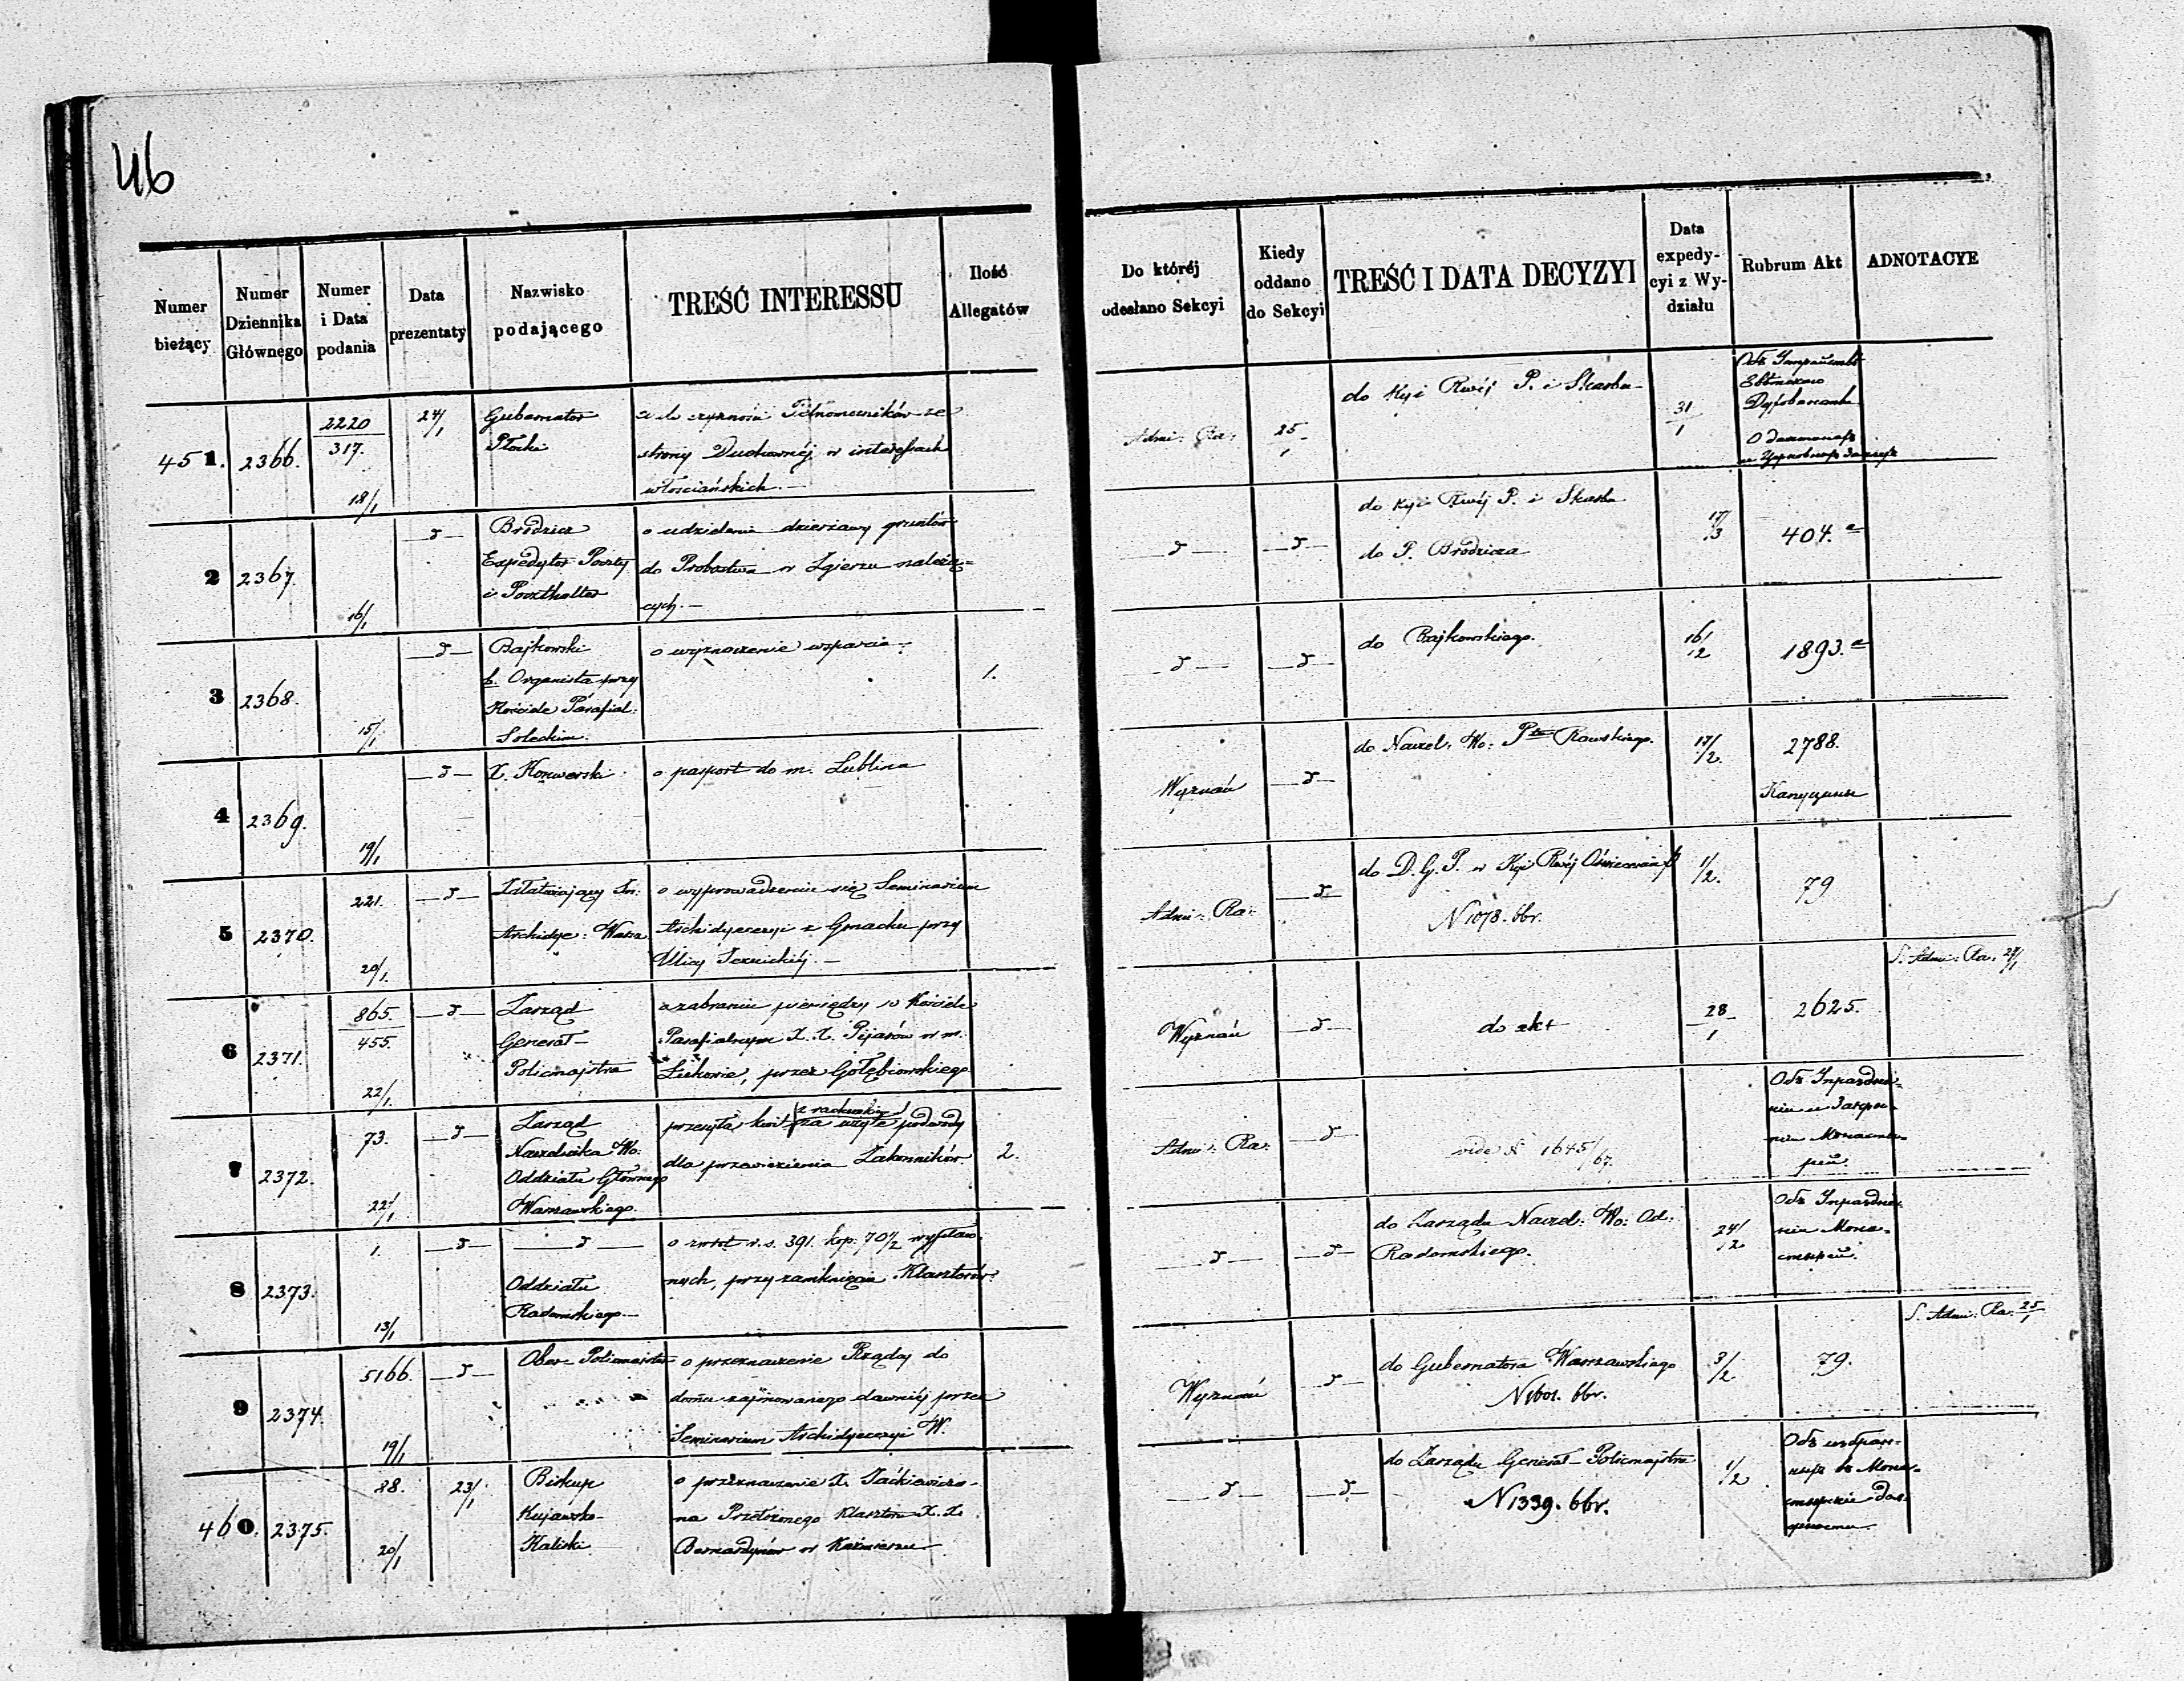 46
Numer bieżący
Numer Dziennika Głównego
Numer i Data podania
Data prezentaty
Nazwisko podającego
TREŚĆ INTERESSU
Ilość Allegatów
Do któréj odesłano Sekcyi
Kiedy oddano do Sekcyi
TREŚĆ I DATA DECYZYI
Data expedycyi z Wydziału
Rubrum Akt
ADNOTACYE
451. 2366. 2220/317. 18/1 24/1
Gubernator
Płocki
Pełnomocników ze
strony Duchownéj w interessach
włościańskich.—
Admi: Ra: 25/1
do Kyi Rwéj P. i Skarbu
31/1
2 2367. 16/1 —d—
Brodzicz
Expedytor Poczty
i Poczthalter
o udzielenie dzierżawy gruntów
do Probostwa w Zgierzu należą=
cych.—
—d— —d—
do Kyi Rwéj P. i Skarbu
do P. Brodzicza
17/3 404. a
3 2368. 15/1 —d—
Bajkowski
b. Organista przy
Kościele Parafial:
Soleckim.
o wyznaczenie wsparcia—
1.
—d— —d—
do Bajkowskiego.
16/12 1893. a
4 2369. 19/1 —d—
X. Korwerski
o pasport do m. Lublina
Wyznań —d—
do Naczel. Wo: Ptu Rawskiego.
17/2. 2788.
Капуцины
5 2370. 221. 20/1. —d—
Załatwiający In:
Archidye: Warsz
o wyprowadzenie się Seminarium
Archidyecezyi z Gmachu przy
Ulicy Jezuickiéj.—
Admi: Ra: —d—
do D. G. P. w Kyi Rwéj Oświecenia P.
N 1078. bbr.
1/2. 79
6 2371. 865./455. 22/1. —d—
Zarząd
Generał-
Policmajstra
o zabraniu pieniędzy w Kościele
Parafialnym X. X. Pijarów w m.
Łukowie, przez Gołębiowskiego
Wyznań —d—
do akt
28/1 2625.
S. Admi: Ra: 27/1
7 2372. 73. 22/1 —d—
Zarząd
Naczelnika Wo:
Oddziału Głównego
Warszawskiego
przesyła kwit z rachunkiem za użyte podwody
dla przewiezienia Zakonników.
2.
Admi: Ra: —d—
vide N 1645/67.
Объ Упраздне-
нiи и Закры-
тiи Монасты-
рей.
8 2373. 1. 13/1 —d—
—d—
Oddziału
Radomskiego—
o zwrot r. s. 391. kop. 70 1/2 wydatko-
nych, przy zamknięciu Klasztorów
—d— —d—
do Zarządu Naczel: Wo: Od:
Radomskiego.
24/12
Объ Упраздне-
нiи Мона-
стырей.
9 2374. 5166. 19/1 —d—
Ober-Policmajster
o przeznaczenie Rządcy do
domu zajmowanego dawniéj przez
Seminarium Archidyecezyi W.
Wyznań —d—
do Gubernatora Warszawskiego
N 1601. bbr.
3/2 79.
S. Admi: Ra: 25/1
460. 2375. 88. 20/1 23/1
Biskup
Kujawsko-
Kaliski
o przeznaczenie X. Jaćkiewicza-
na Przełożonego Klasztoru X. X.
Bernardynów w Kaźmierzu.
—d— —d—
do Zarządu Generał-Policmajstra
N 1339. bbr.
1/2